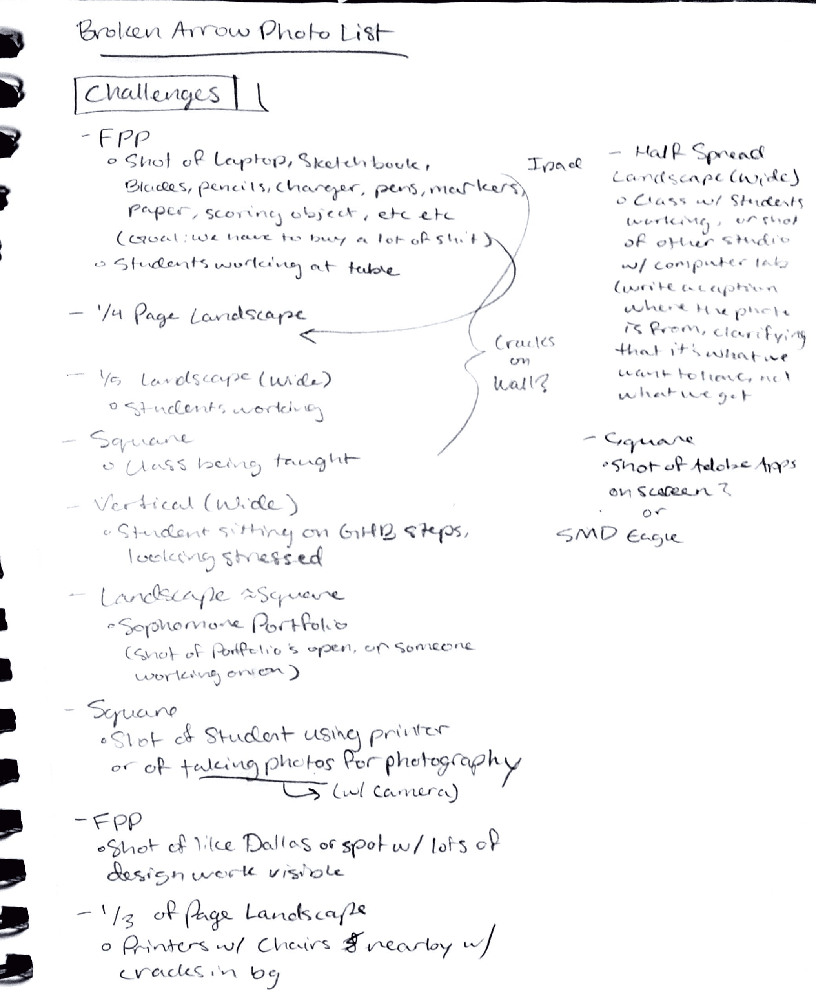 Broken Arrow Photo List
Challenges
- FPP
o Shot of Laptop, Sketchbook,
Blades, pencils, charger, pens, markers,
paper, scoring object, etc etc
(Goal: we have to buy a lot of shit)
o Students working at table
- 1/4 Page Landscape
- Landscape (wide)
o Students working
- Square
o Class being taught
- Vertical (wide)
o Student sitting on GHB steps,
looking stressed
- Landscape ≈ Square
o Sophomore Portfolio
(Shot of Portfolio's open, or someone
working on on)
- Square
o Shot of Student using printer
or of taking photos for photography
(w/ camera)
- FPP
o Shot of like Dallas or spot w/ lots of
design work visible
- 1/3 of Page Landscape
o Printers w/ Chairs nearby w/
cracks in bg
Ipad
Cracks
on
Wall?
- Half Spread
Landscape (wide)
o Class w/ Students
working, or shot
of other studio
w/ computer lab
(write a caption
where the photo
is from, clarifying
that it's what we
want to have, not
what we get
- Square
• Shot of Adobe Apps
on screen?
or
SMD Eagle